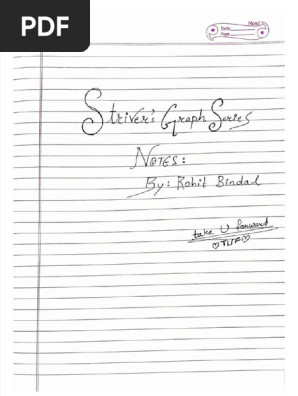 PDF
Date
Page
Striver's Graph Series
NOTES:
By: Rohit Bindal
take U forward
♡TUF♡